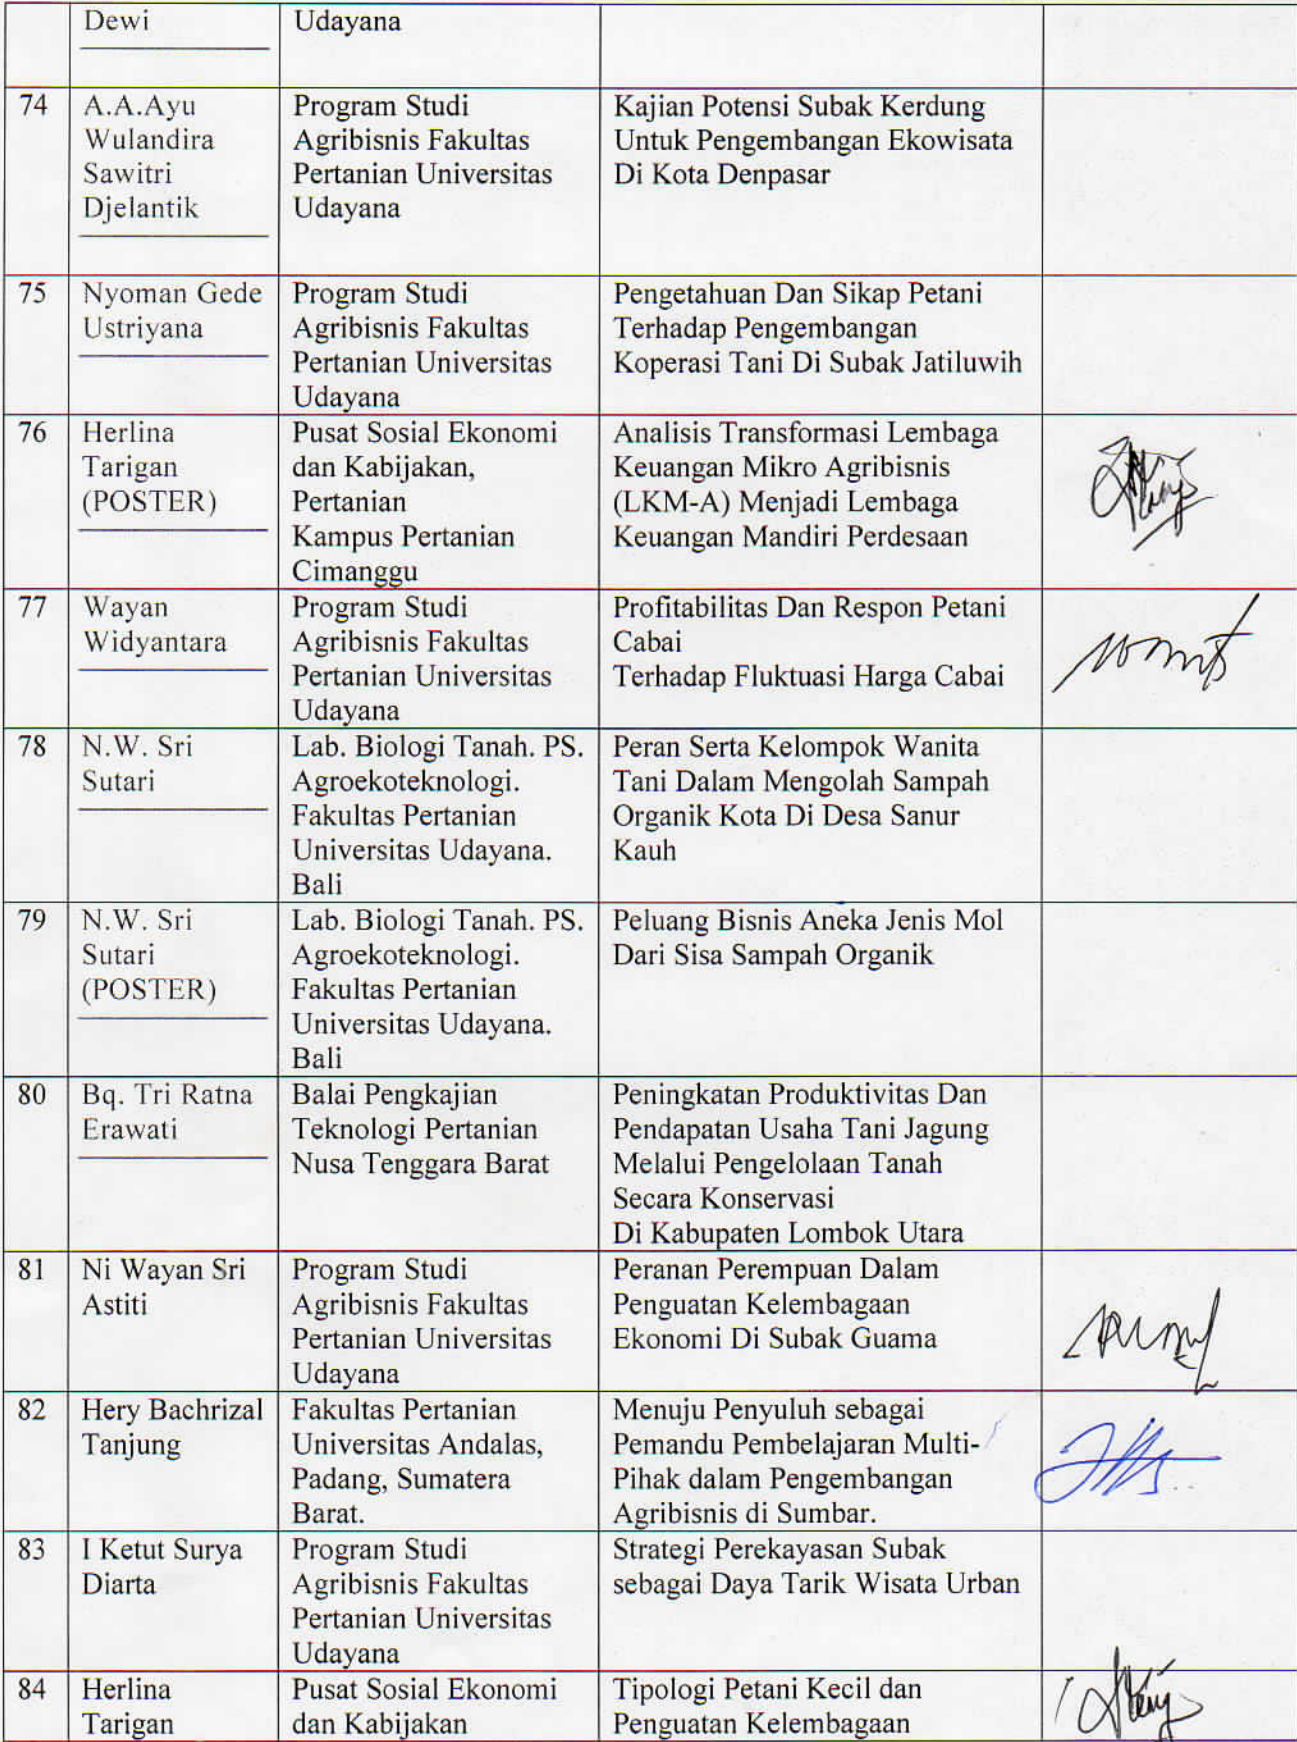 Dewi
Udayana
74
A.A.Ayu
Wulandira
Sawitri
Djelantik
Program Studi
Agribisnis Fakultas
Pertanian Universitas
Udayana
Kajian Potensi Subak Kerdung
Untuk Pengembangan Ekowisata
Di Kota Denpasar
75
Nyoman Gede
Ustriyana
Program Studi
Agribisnis Fakultas
Pertanian Universitas
Udayana
Pengetahuan Dan Sikap Petani
Terhadap Pengembangan
Koperasi Tani Di Subak Jatiluwih
76
Herlina
Tarigan
(POSTER)
Pusat Sosial Ekonomi
dan Kabijakan,
Pertanian
Kampus Pertanian
Cimanggu
Analisis Transformasi Lembaga
Keuangan Mikro Agribisnis
(LKM-A) Menjadi Lembaga
Keuangan Mandiri Perdesaan
77
Wayan
Widyantara
Program Studi
Agribisnis Fakultas
Pertanian Universitas
Udayana
Profitabilitas Dan Respon Petani
Cabai
Terhadap Fluktuasi Harga Cabai
78
N.W. Sri
Sutari
Lab. Biologi Tanah. PS.
Agroekoteknologi.
Fakultas Pertanian
Universitas Udayana.
Bali
Peran Serta Kelompok Wanita
Tani Dalam Mengolah Sampah
Organik Kota Di Desa Sanur
Kauh
79
N.W. Sri
Sutari
(POSTER)
Lab. Biologi Tanah. PS.
Agroekoteknologi.
Fakultas Pertanian
Universitas Udayana.
Bali
Peluang Bisnis Aneka Jenis Mol
Dari Sisa Sampah Organik
80
Bq. Tri Ratna
Erawati
Balai Pengkajian
Teknologi Pertanian
Nusa Tenggara Barat
Peningkatan Produktivitas Dan
Pendapatan Usaha Tani Jagung
Melalui Pengelolaan Tanah
Secara Konservasi
Di Kabupaten Lombok Utara
81
Ni Wayan Sri
Astiti
Program Studi
Agribisnis Fakultas
Pertanian Universitas
Udayana
Peranan Perempuan Dalam
Penguatan Kelembagaan
Ekonomi Di Subak Guama
82
Hery Bachrizal
Tanjung
Fakultas Pertanian
Universitas Andalas,
Padang, Sumatera
Barat.
Menuju Penyuluh sebagai
Pemandu Pembelajaran Multi-
Pihak dalam Pengembangan
Agribisnis di Sumbar.
83
I Ketut Surya
Diarta
Program Studi
Agribisnis Fakultas
Pertanian Universitas
Udayana
Strategi Perekayasan Subak
sebagai Daya Tarik Wisata Urban
84
Herlina
Tarigan
Pusat Sosial Ekonomi
dan Kabijakan
Tipologi Petani Kecil dan
Penguatan Kelembagaan